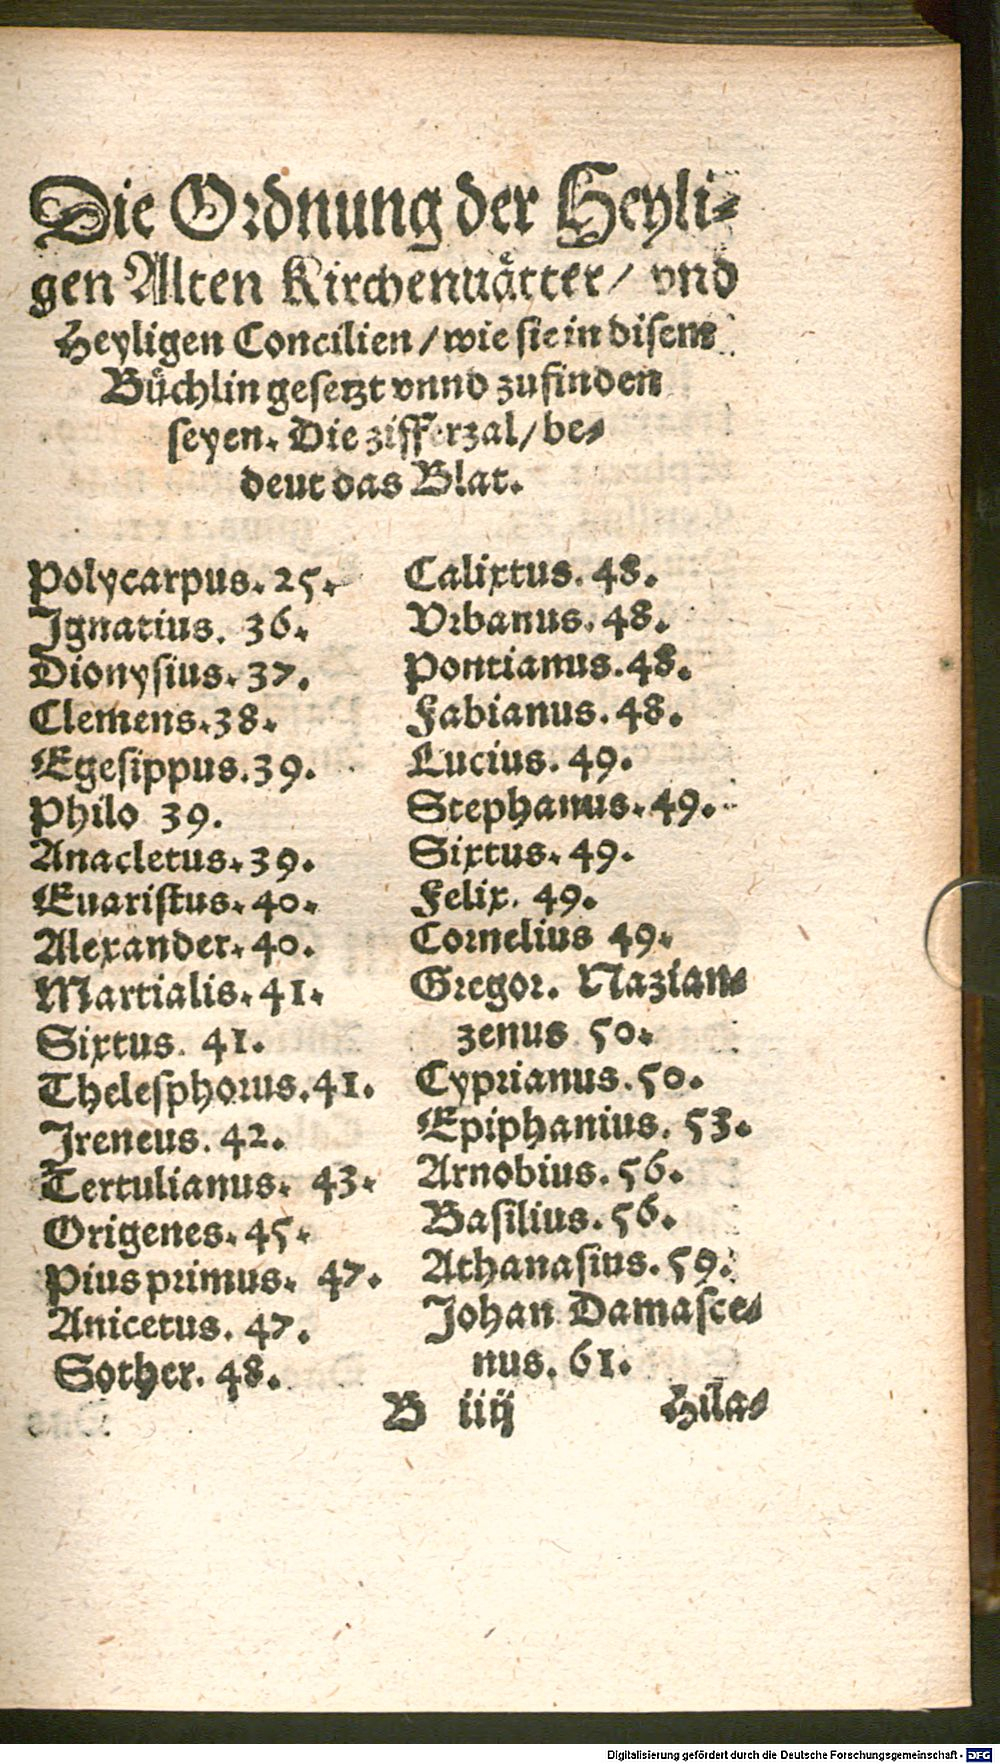 Die Ordnung der Heyli⸗
gen Alten Kirchenuaͤtter/ vnd
Heyligen Concilien/wie sie in disem
Buͤchlin gesetzt vnnd zufinden
seyen. Die zifferzal/be⸗
deut das Blat.
Polycarpus. 25.
Ignatius. 36.
Dionysius. 37.
Clemens. 38.
Egesippus. 39.
Philo 39.
Anacletus. 39.
Euaristus. 40.
Alexander. 40.
Martialis. 41.
Sixtus. 41.
Thelesphorus. 41.
Ireneus. 42.
Tertulianus. 43.
Origenes. 45.
Pius primus. 47.
Anicetus. 47.
Sother. 48.
Calixtus. 48.
Vrbanus. 48.
Pontianus. 48.
Fabianus. 48.
Lucius. 49.
Stephanus. 49.
Sixtus. 49.
Felix. 49.
Cornelius 49.
Gregor. Nazian⸗
zenus 50.
Cyprianus. 50.
Epiphanius. 53.
Arnobius. 56.
Basilius. 56.
Athanasius. 59.
Johan Damasce⸗
nus. 61.
B iiij Hila⸗
Digitalisierung gefördert durch die Deutsche Forschungsgemeinschaft - DFG